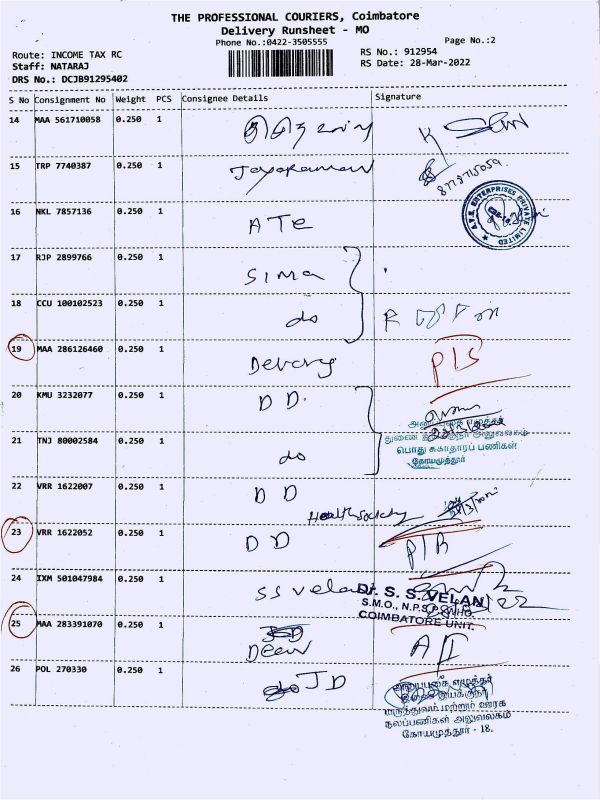 THE PROFESSIONAL COURIERS, Coimbatore
Delivery Runsheet - MO
Phone No.:0422-3505555
Page No.:2
Route: INCOME TAX RC
Staff: NATARAJ
DRS No.: DCJB91295402
RS No.: 912954
RS Date: 28-Mar-2022
S No Consignment No Weight PCS Consignee Details Signature
14 MAA 561710058 0.250 1
15 TRP 7740387 0.250 1 Jayaraman 8773715059
16 NKL 7857136 0.250 1 ATE
A.V.R. ENTERPRISES PRIVATE LIMITED
17 RJP 2899766 0.250 1 Sima
18 CCU 100102523 0.250 1 do
19 MAA 286126460 0.250 1
20 KMU 3232077 0.250 1 DD.
அலுவலகம்
21 TNJ 80002584 0.250 1 do
பொது சுகாதாரப் பணிகள்
கோயமுத்தூர்
22 VRR 1622007 0.250 1 DD
Health Society
23 VRR 1622052 0.250 1 DD
24 IXM 501047984 0.250 1 SS Velan
Dr. S. S. VELAN
S.M.O., N.P.S.P.
COIMBATORE UNIT.
25 MAA 283391070 0.250 1 Deen
26 POL 270330 0.250 1 JD
மருத்துவம் மற்றும் ஊரக
நலப்பணிகள் அலுவலகம்
கோயமுத்தூர் - 18.